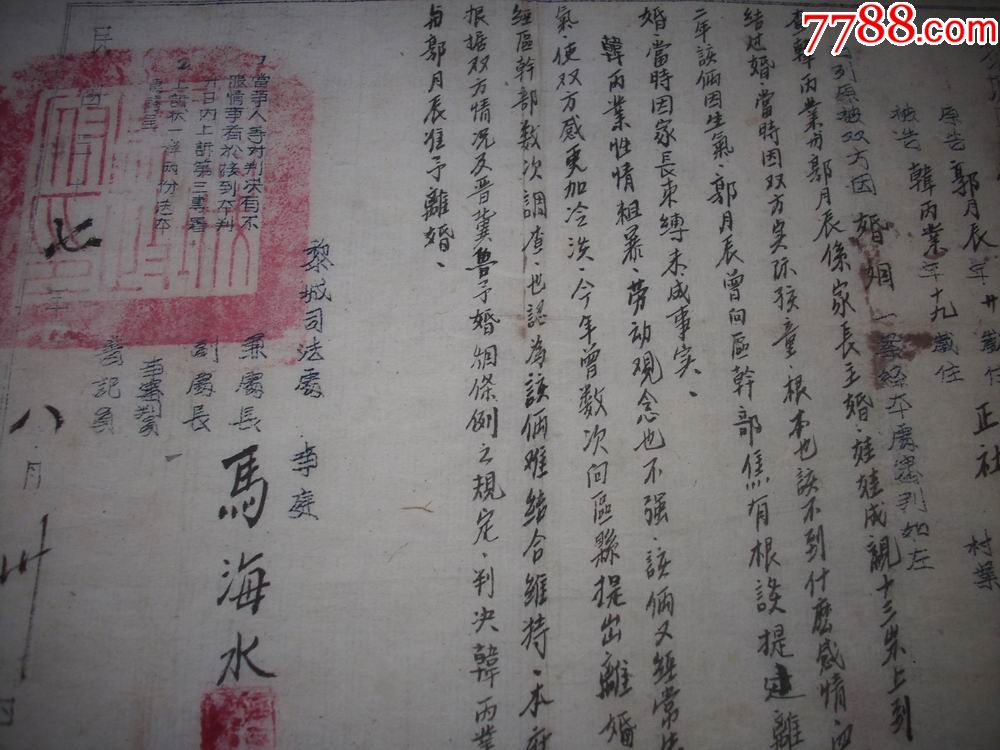 7788.com
原告 郭月辰 年廿歲住 正社 村業
被告 韓丙業 年十九歲住
列原被双方因 婚姻 一案經本處審判如左
韓丙業与郭月辰係家長主婚·娃娃成親十三岁上到
结过婚·當時因双方实际孩童·根本也談不到什麽感情·四
二年該俩因生氣·郭月辰曾向區幹部焦有根談提過離
婚·當時因家長束縛未成事实、
韓丙業性情粗暴·劳动观念也不强·該俩又經常生
氣·使双方感更加冷淡·今年曾數次向區縣提出離婚
經區幹部数次調查·也認為該俩难结合維持·本府
根据双方情况及晋冀鲁予婚姻條例之規定·判决韓丙業
与郭月辰准予離婚、
黎城司法處 李庭
兼處長 馬海水
副處長
審判員
書記員
1 當事人等对判决有不
服情事者於接到本判
廿日内上訴第三專署
2 上訴状一造兩份
七 年 八 月 卅 日